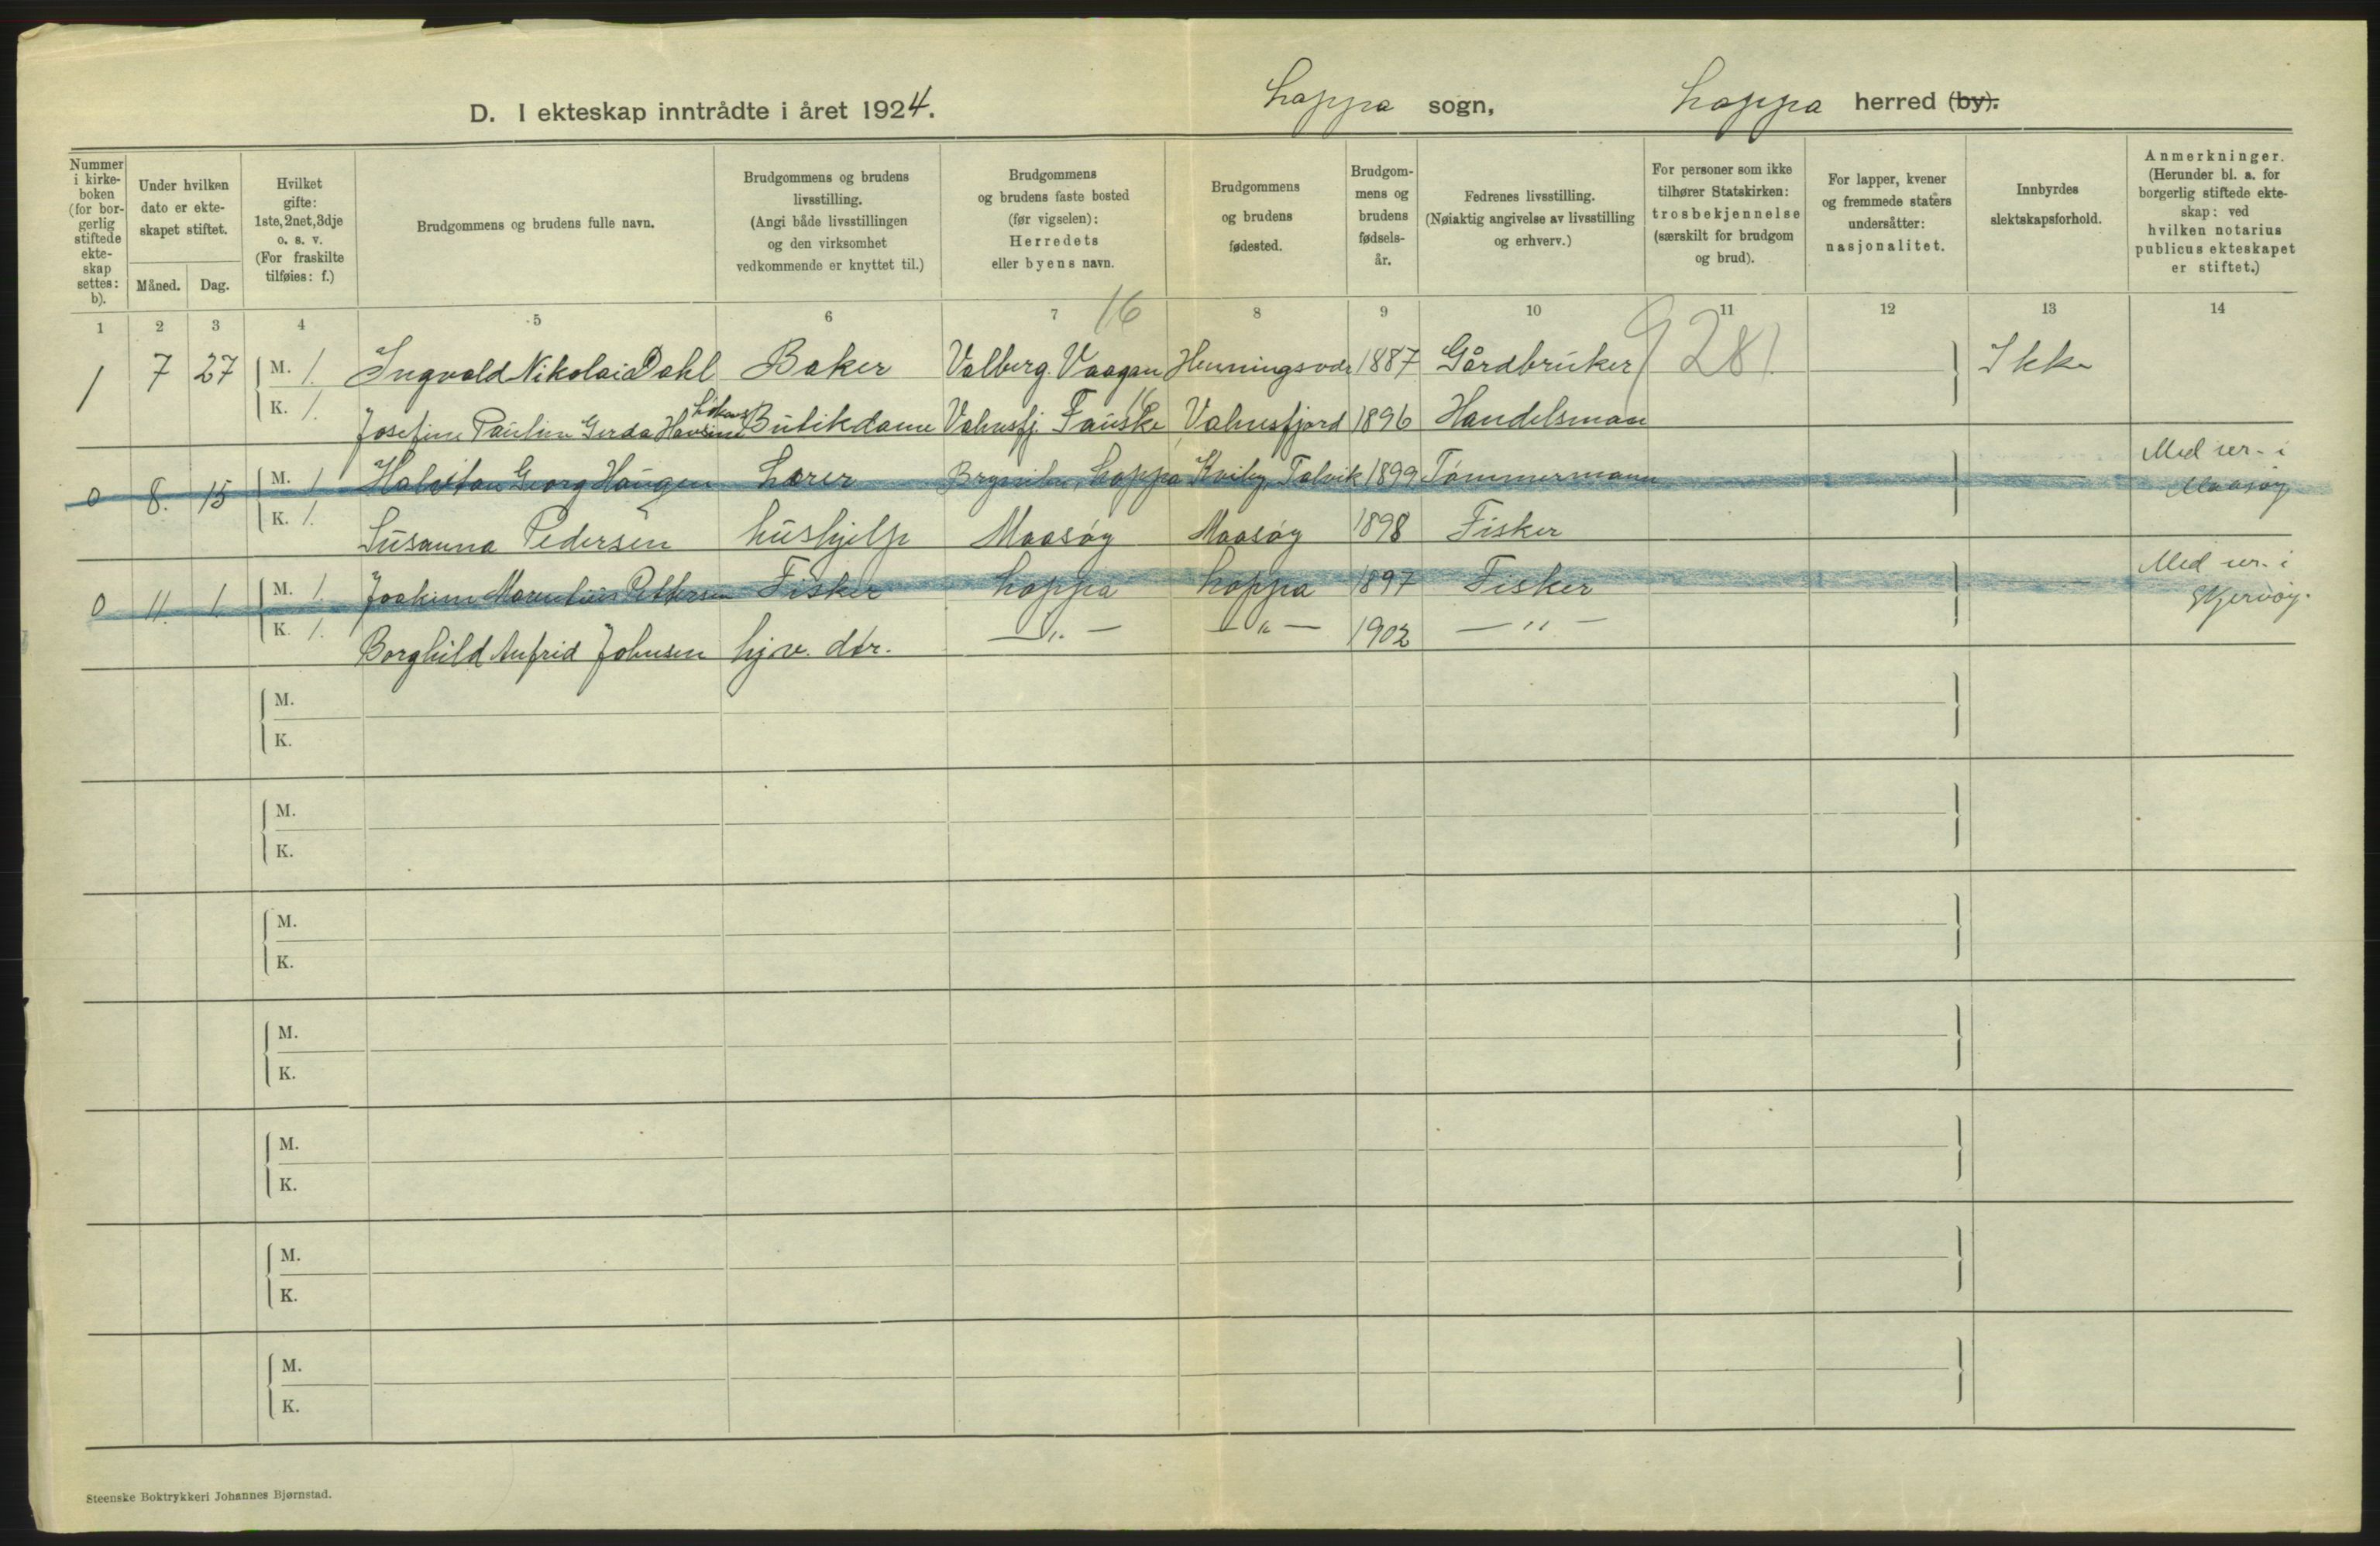 D. I ekteskap inntrådte i året 1924. Loppa sogn, Loppa herred (by).
Nummer i kirkeboken (for borgerlig stiftede ekteskap settes: b).
Under hvilken dato er ekteskapet stiftet.
Måned. Dag.
Hvilket gifte: 1ste, 2net, 3dje o. s. v. (For fraskilte tilføies: f.)
Brudgommens og brudens fulle navn.
Brudgommens og brudens livsstilling. (Angi både livsstillingen og den virksomhet vedkommende er knyttet til.)
Brudgommens og brudens faste bosted (før vigselen): Herredets eller byens navn.
Brudgommens og brudens fødested.
Brudgommens og brudens fødselsår.
Fedrenes livsstilling. (Nøiaktig angivelse av livsstilling og erhverv.)
For personer som ikke tilhører Statskirken: trosbekjennelse (særskilt for brudgom og brud).
For lapper, kvener og fremmede staters undersåtter: nasjonalitet.
Innbyrdes slektskapsforhold.
Anmerkninger. (Herunder bl. a. for borgerlig stiftede ekteskap: ved hvilken notarius publicus ekteskapet er stiftet.)
1 2 3 4 5 6 7 8 9 10 11 12 13 14
16
1 7 27 M. 1. Ingvald Nikolai Dahl Baker Valberg Vaagan Henningsvær 1887 Gårdbruker 9281 Ikke
K. 1. Josefine Pauline Gerda Hansine Butikdame Valnesfj. Fauske Valnesfjord 1896 Handelsman
16
0 8. 15 M. 1 Halvdan Georg Haugen Lærer Loppa Kviby, Talvik 1899 Tømmermann Med er. i Maasøy
K. 1. Susanna Pedersen hushjelp Maasøy Maasøy 1898 Fisker
0 11. 1. M. 1. Joakim Pettersen Fisker Loppa Loppa 1897 Fisker Med er. i Skjervøy.
K. 1. Borghild Anfrid Johnsen hjv. dtr. — " — — " — 1902 — " —
M.
K.
M.
K.
M.
K.
M.
K.
M.
K.
M.
K.
M.
K.
Steenske Boktrykkeri Johannes Bjørnstad.